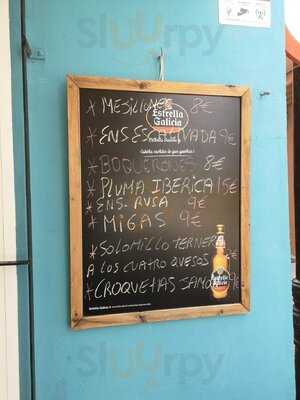 Sluurpy
* MESILLONES 8€
Estrella
Galicia
* ENS ESCALIVADA 9€
* BOQUERONES 8€
* PLUMA IBERICA 15€
* ENS. RUSA 9€
* MIGAS 9€
* SOLOMILLO TERNERA
A LOS CUATRO QUESOS
* CROQUETAS JAMON 9€
Sluurpy